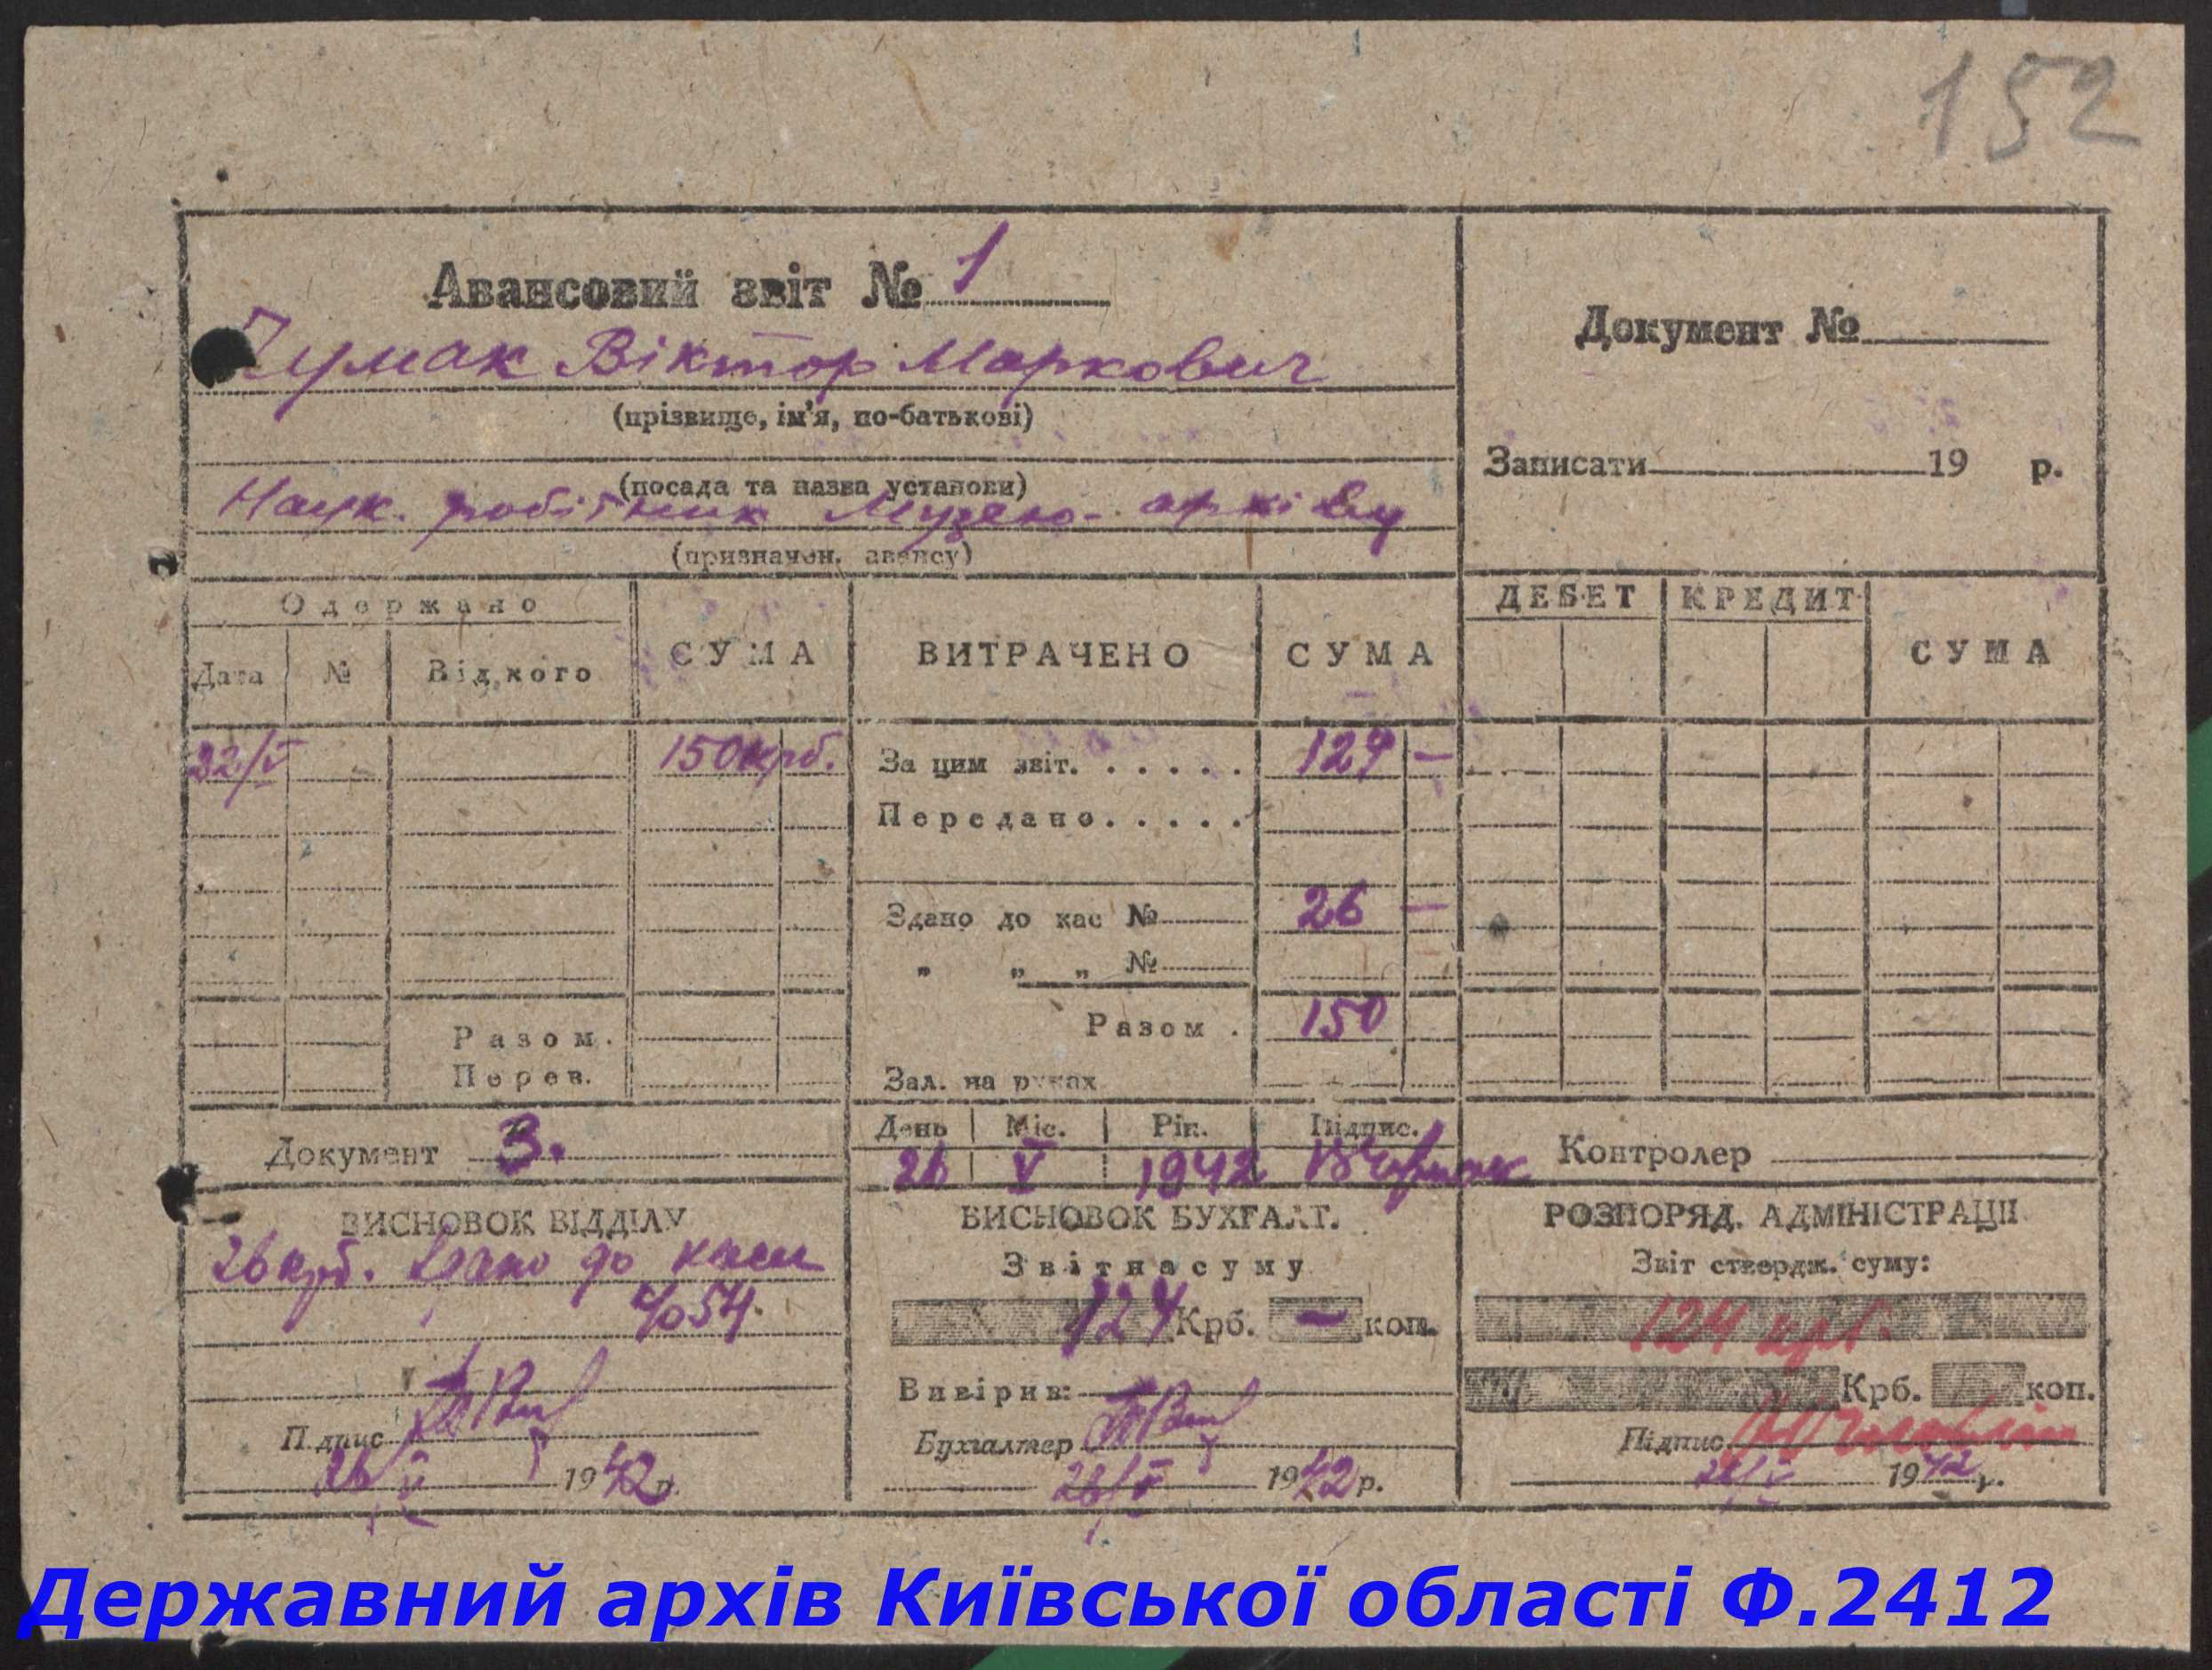 152
Авансовий звіт № 1
Чумак Віктор Маркович
(прізвище, ім'я, по-батькові)
(посада та назва установи)
Наук. робітник Музею-архіву
(призначен. авансу)
Документ №
Записати 19 р.
Одержано
Дата № Від кого СУМА ВИТРАЧЕНО СУМА
ДЕБЕТ КРЕДИТ СУМА
22/V 150 крб. За цим звіт. . . . . . 124 —
Передано. . . . .
Здано до кас № 26 —
" " " №
Разом . 150
Разом.
Перев.
Зал. на руках
Документ 3.
День Міс. Рік. Підпис.
26 V 1942 ВЧумак
Контролер
ВИСНОВОК ВІДДІЛУ
26 крб. Здано до каси
Підпис
26/V 1942 р.
ВИСНОВОК БУХГАЛТ.
Звіт на суму
124 Крб. — коп.
Вивірив:
Бухгалтер
26/V 1942 р.
РОЗПОРЯД. АДМІНІСТРАЦІІ
Звіт ствердж. суму:
124 крб.
Крб. коп.
Підпис
26/V 1942 р.
Державний архів Київської області Ф.2412